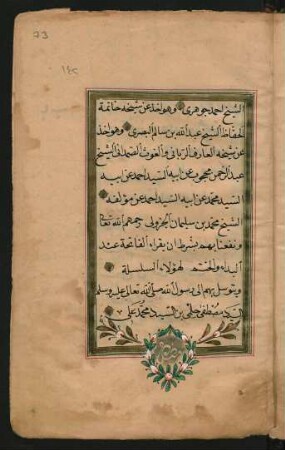 73
١٤٢
الشيخ احمد جوهرى وهو اخذ عن شيخه خاتمة
الحفاظ الشيخ عبد الله بن سالم البصرى وهو اخذ
عن شيخه العارف الربانى والغوث الصمدانى الشيخ
عبد الرحمن محجوب عن ابيه السيد احمد عن ابيه
السيد محمد عن ابيه السيد احمد عن مؤلفه
الشيخ محمد بن سليمان الجزولى رحمهم الله تعالى
ونفعنا بهم بشرط ان يقراء الفاتحة عند
البداء والختم لهؤلاء السلسلة
ويتوسل بهم الى رسول الله صلى الله تعالى عليه وسلم
السيد مصطفى حلمى بن السيد محمد على